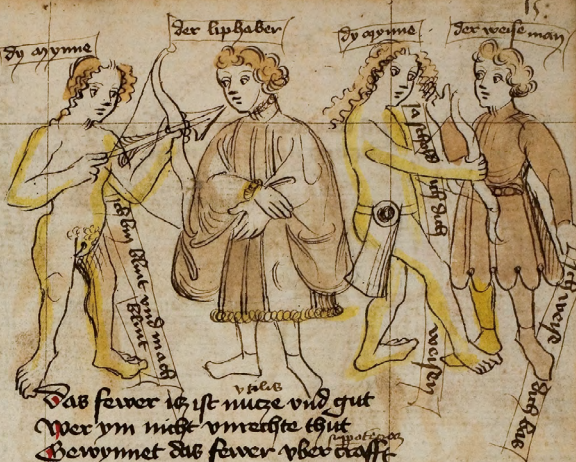 15.
dy mynne
der liphaber
dy mynne
der weise man
ich bin blint vnd mach
blint
ich schoss
weisen
ich weise
dich
vtilis
Das fewer iz ist nucze vnd gut
Wer ym nicht vnrechte thut
Gewynnet das fewer vber crafft